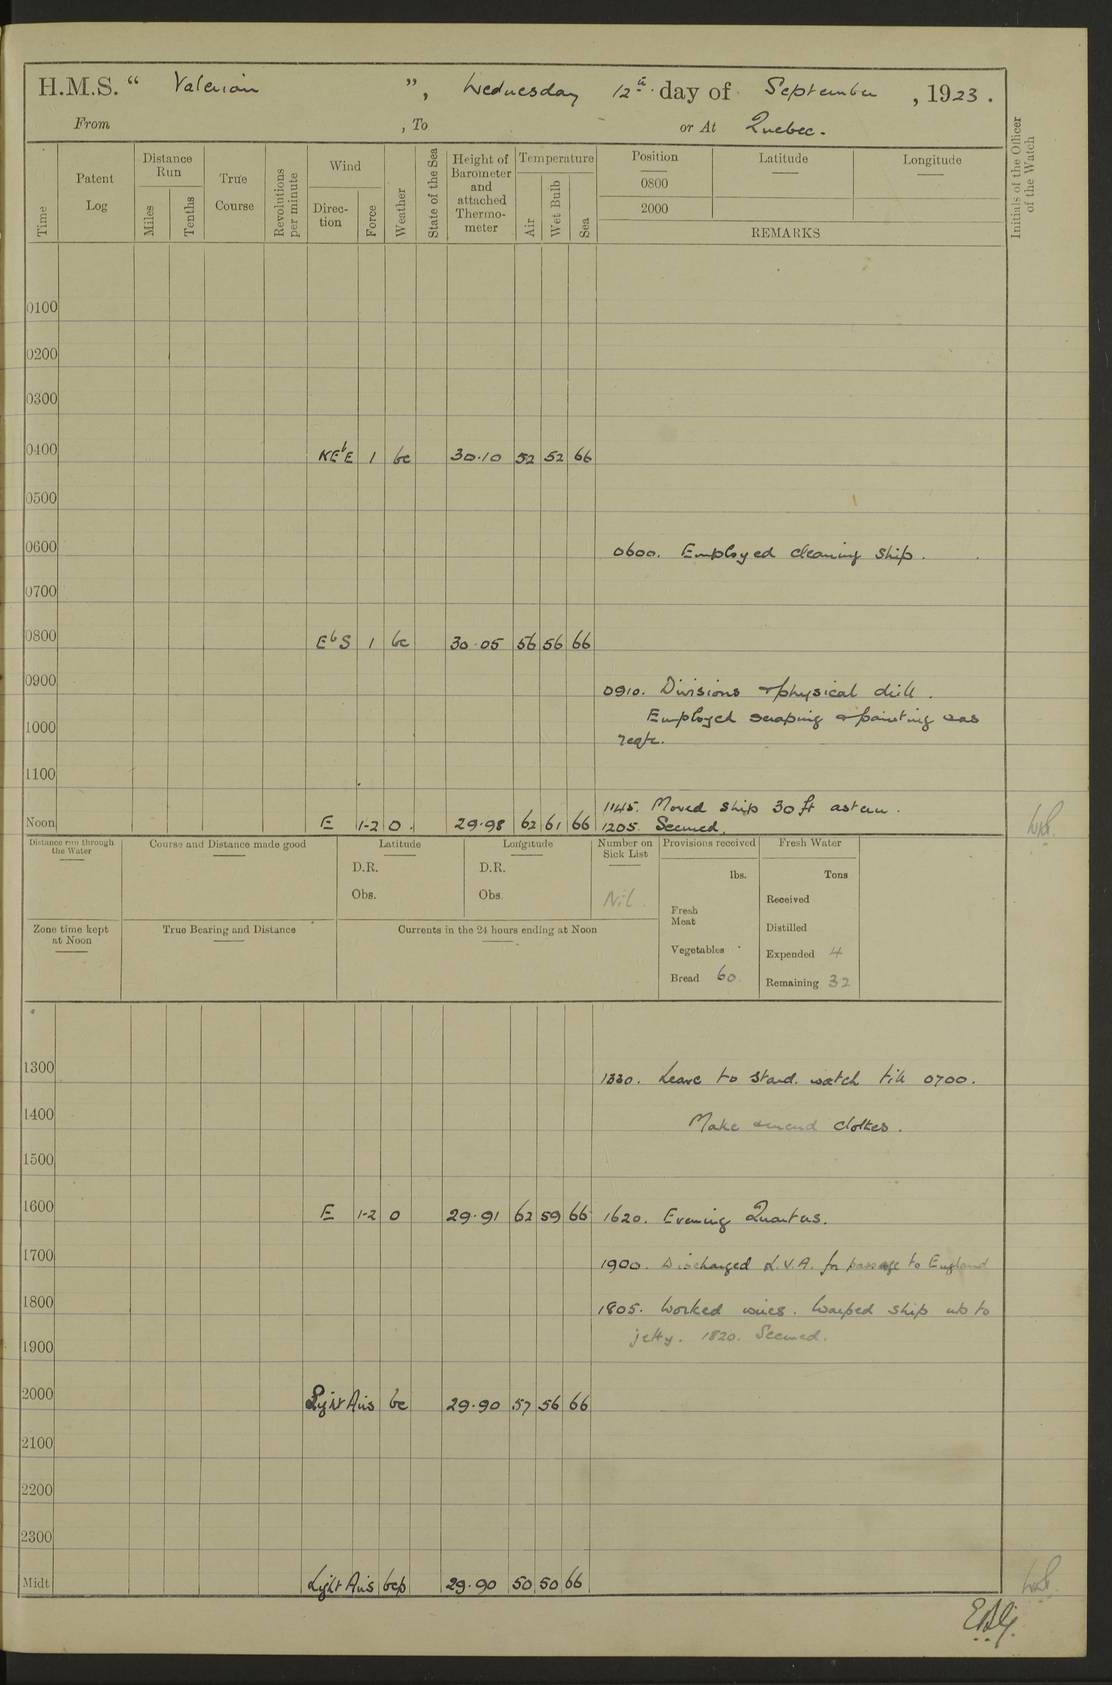 H.M.S. " Valerian ", Wednesday 12th day of September, 1923.
From , To or At Quebec.
Time
Patent Log
Distance Run
Miles
Tenths
True Course
Revolutions per minute
Wind
Direction
Force
Weather
State of the Sea
Height of Barometer and attached Thermometer
Temperature
Air
Wet Bulb
Sea
Position
Latitude
Longitude
0800
2000
REMARKS
Initials of the Officer of the Watch
0100
0200
0300
0400 NEbE 1 bc 30.10 52 52 66
0500
0600 0600. Employed cleaning ship.
0700
0800 EbS 1 bc 30.05 56 56 66
0900 0910. Divisions & physical drill.
Employed scraping & painting & as
1000 reqte.
1100
1145. Moved ship 30 ft astern.
Noon E 1-2 0. 29.98 62 61 66 1205. Secured.
Distance run through the Water
Course and Distance made good
Latitude
D.R.
Obs.
Longitude
D.R.
Obs.
Number on Sick List
Nil.
Provisions received
lbs.
Fresh Meat
Vegetables
Bread 60
Fresh Water
Tons
Received
Distilled
Expended 4
Remaining 32
Zone time kept at Noon
True Bearing and Distance
Currents in the 24 hours ending at Noon
1300 1330. Leave to Starbd. watch till 0700.
1400 Make & mend clothes.
1500
1600 E 1-2 0 29.91 62 59 66 1620. Evening Quarters.
1700 1900. Discharged V.A. for passage to England
1800 1805. Worked wires. Warped ship up to
1900 jetty. 1820. Secured.
2000 Light Airs bc 29.90 57 56 66
2100
2200
2300
Midt Light Airs bcp 29.90 50 50 66